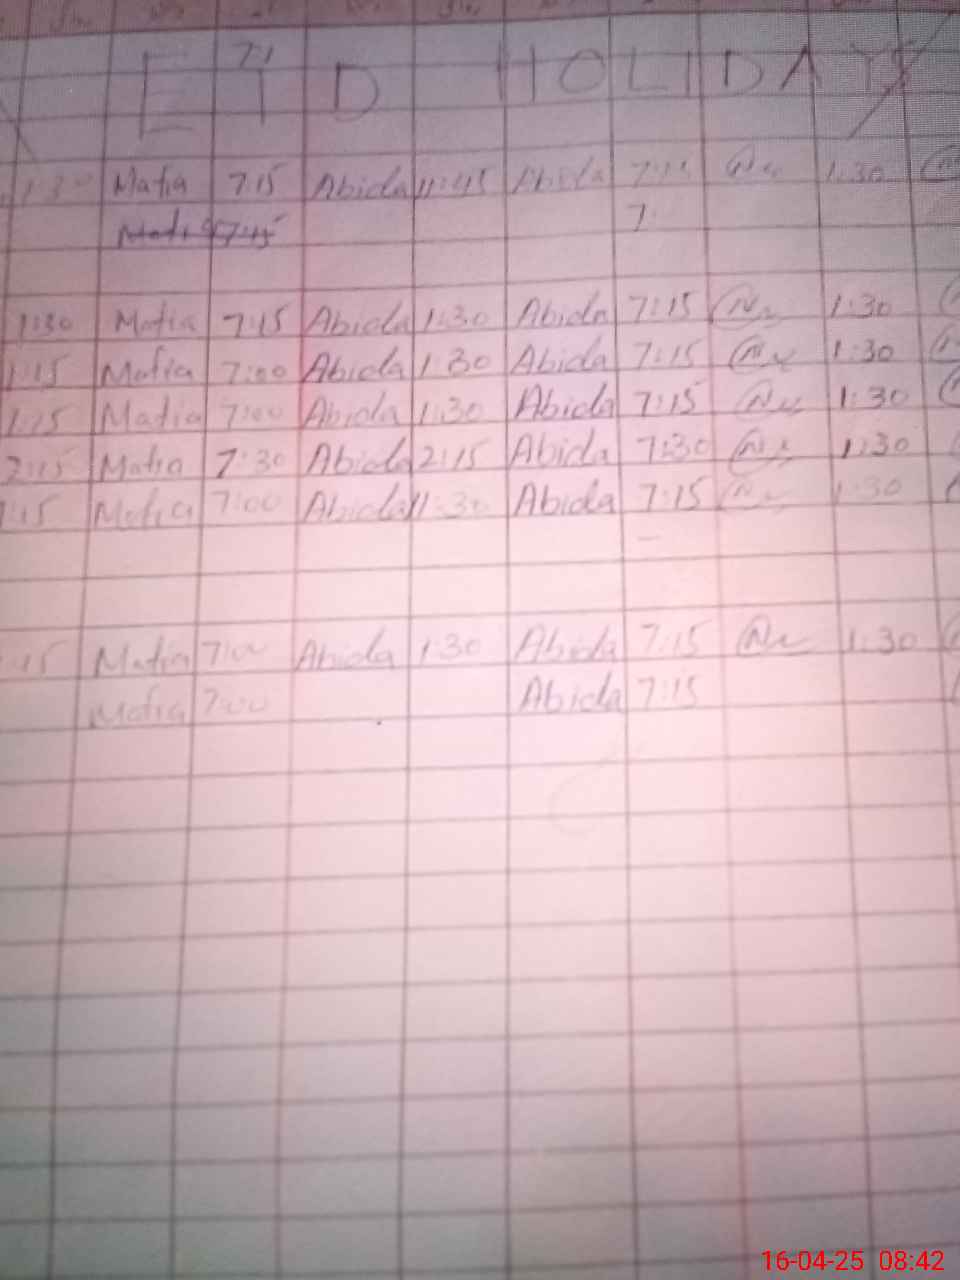 71
EID HOLIDAYS
1:30 Mafia 7:15 Abida 11:45 Abida 7:15 1:30
7
1:30 Mafia 7:15 Abida 1:30 Abida 7:15 1:30
1:15 Mafia 7:00 Abida 1:30 Abida 7:15 1:30
1:15 Mafia 7:00 Abida 1:30 Abida 7:15 1:30
2:15 Mafia 7:30 Abida 2:15 Abida 7:30 1:30
1:15 Mafia 7:00 Abida 11:30 Abida 7:15 1:30
:15 Mafia 7:00 Abida 1:30 Abida 7:15 1:30
Mafia 7:00 Abida 7:15
16-04-25 08:42